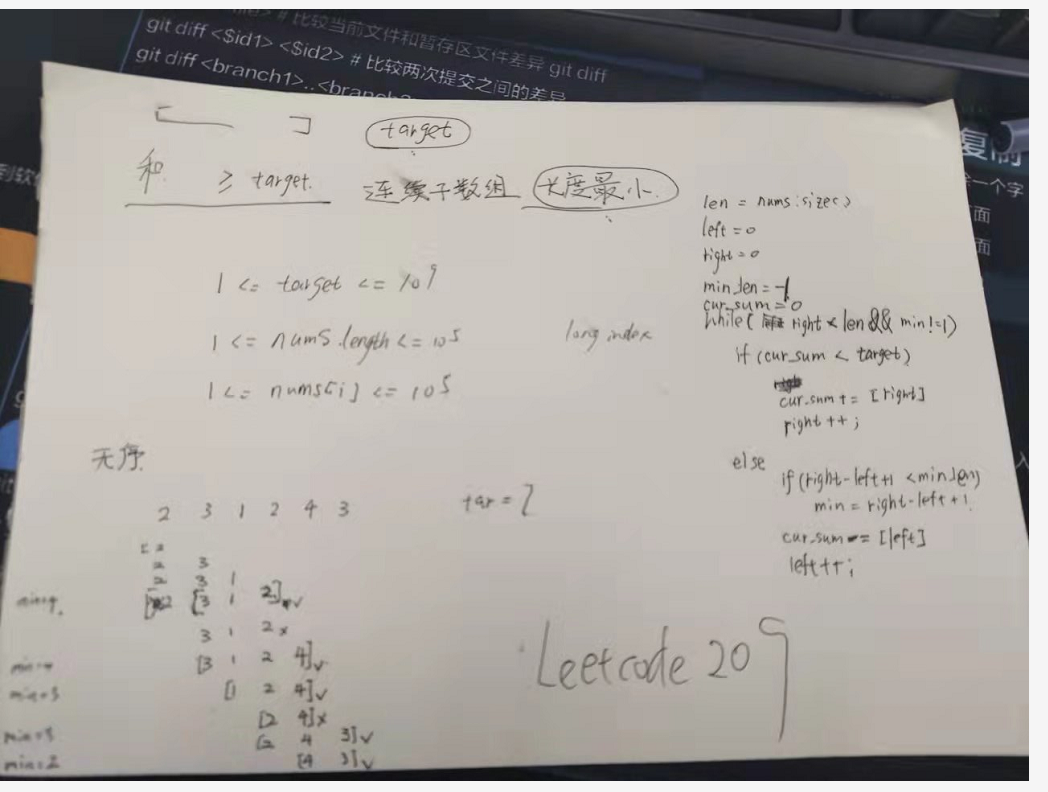 # 比较当前文件和暂存区文件差异 git diff
git diff <$id1> <$id2> # 比较两次提交之间的差异
git diff <branch1>..<branch2>
复制
一个字
页面
面
target
和 ≥ target. 连续子数组 长度最小.
1 <= target <= 10⁹
1 <= nums.length <= 10⁵
1 <= nums[i] <= 10⁵
long index
无序.
2 3 1 2 4 3
tar = 7
[2
2 3
2 3 1
[3 1 2] ✓
3 1 2 ×
[3 1 2 4] ✓
min=3 [1 2 4] ✓
[2 4] ×
min=3 [2 4 3] ✓
min=2 [4 3] ✓
len = nums.size()
left = 0
right = 0
min_len = -1
cur_sum = 0
while( right < len && min!=1)
if (cur_sum < target)
cur_sum += [right]
right ++ ;
else
if (right-left+1 < min_len)
min = right-left+1.
cur_sum -= [left]
left++;
Leetcode 209